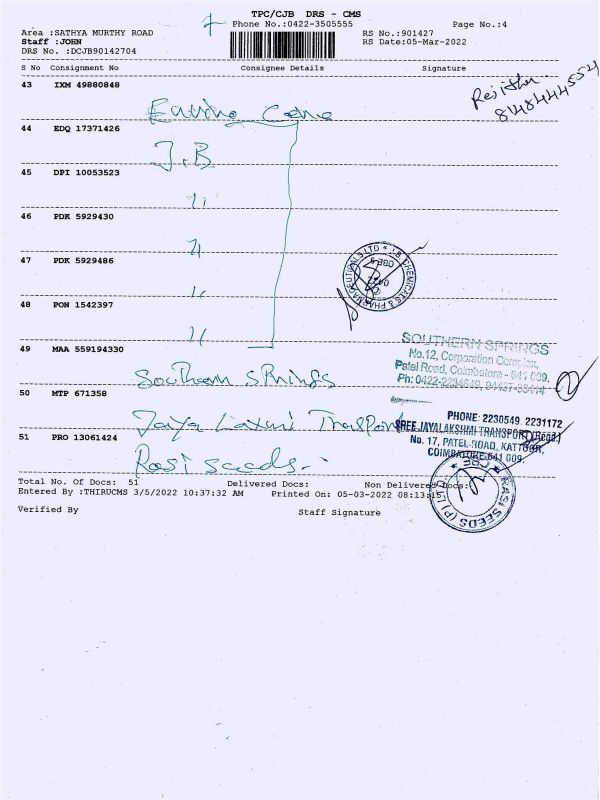 TPC/CJB DRS - CMS
Phone No.:0422-3505555
Page No.:4
Area :SATHYA MURTHY ROAD
RS No.:901427
Staff :JOHN
RS Date:05-Mar-2022
DRS No. :DCJB90142704
S No Consignment No Consignee Details Signature
8148444554
43 IXM 49880848
44 EDQ 17371426
J.B
45 DPI 10053523
46 PDK 5929430
47 PDK 5929486
J.B CHEMICALS & PHARMACEUTICALS LTD
48 PON 1542397
49 MAA 559194330
SOUTHERN SPRINGS
No.12, Corporation Complex,
Patel Road, Coimbatore - 641 009.
Southern Springs
50 MTP 671358
Jaya Laxmi Transport
PHONE: 2230549, 2231172
SREE JAYALAKSHMI TRANSPORT (Regd.)
No. 17, PATEL ROAD, KATTOOR,
COIMBATORE-641 009.
51 PRO 13061424
Rasi Seeds
RASI SEEDS (P) LTD CBE
Total No. Of Docs: 51 Delivered Docs: Non Delivered Docs:
Entered By :THIRUCMS 3/5/2022 10:37:32 AM Printed On: 05-03-2022 08:13:15
Verified By Staff Signature